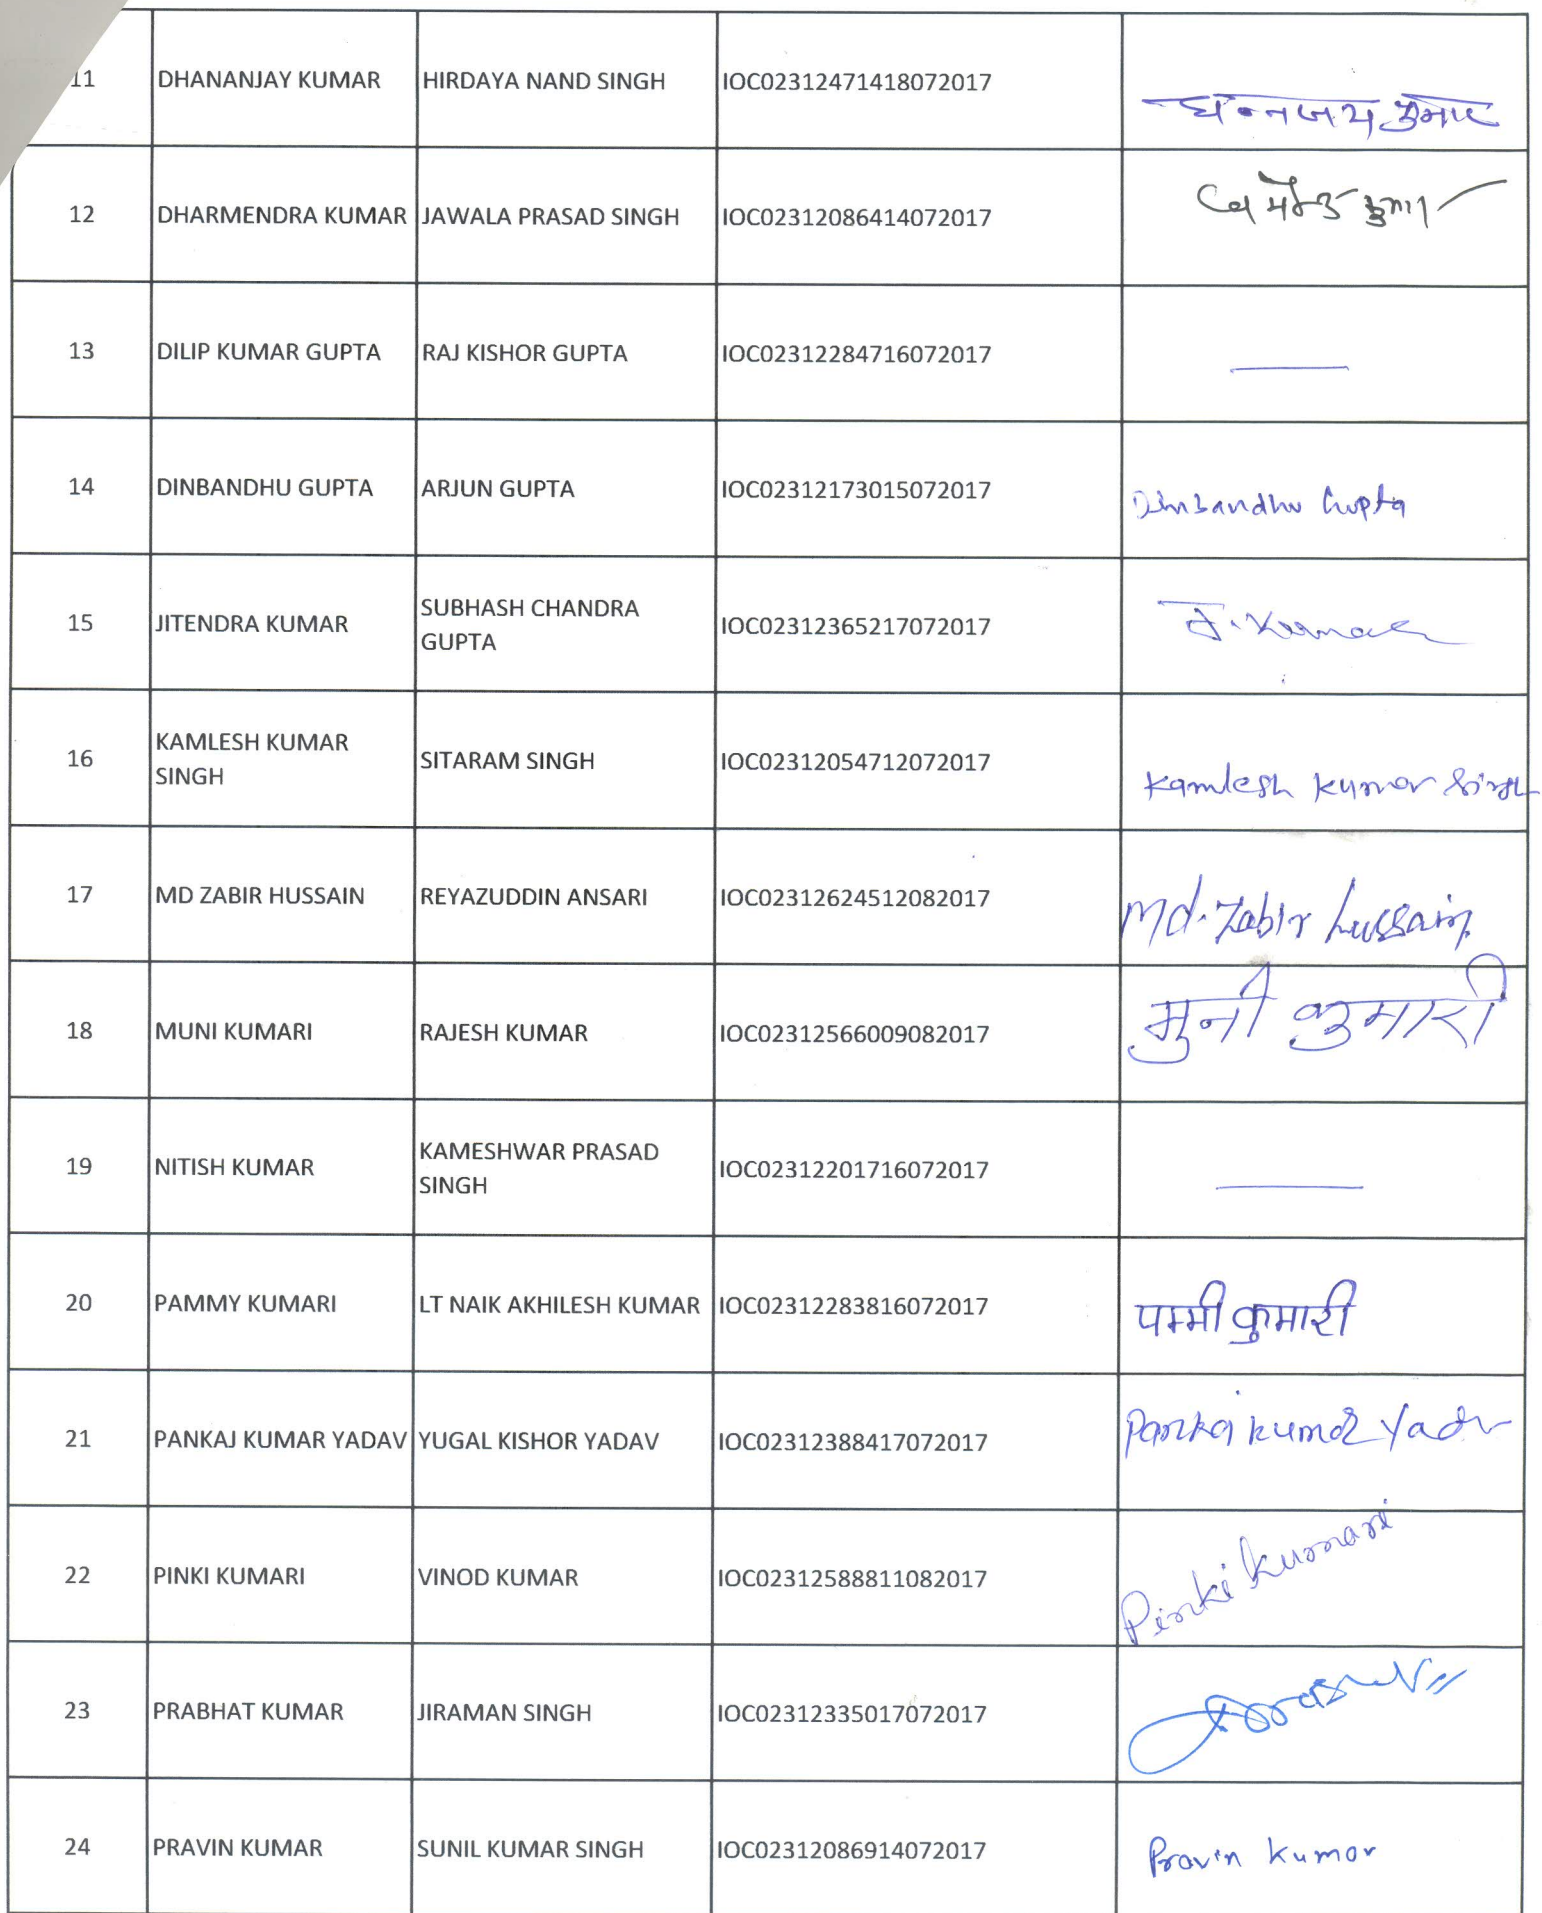 11 DHANANJAY KUMAR HIRDAYA NAND SINGH IOC02312471418072017 धनन्जय कुमार
12 DHARMENDRA KUMAR JAWALA PRASAD SINGH IOC02312086414072017
13 DILIP KUMAR GUPTA RAJ KISHOR GUPTA IOC02312284716072017
14 DINBANDHU GUPTA ARJUN GUPTA IOC02312173015072017 Dinbandhu Gupta
15 JITENDRA KUMAR SUBHASH CHANDRA
GUPTA IOC02312365217072017 J. Kumar
16 KAMLESH KUMAR
SINGH SITARAM SINGH IOC02312054712072017 Kamlesh Kumar Singh
17 MD ZABIR HUSSAIN REYAZUDDIN ANSARI IOC02312624512082017 Md. Zabir hussain
18 MUNI KUMARI RAJESH KUMAR IOC02312566009082017 मुनी कुमारी
19 NITISH KUMAR KAMESHWAR PRASAD
SINGH IOC02312201716072017
20 PAMMY KUMARI LT NAIK AKHILESH KUMAR IOC02312283816072017 पम्मी कुमारी
21 PANKAJ KUMAR YADAV YUGAL KISHOR YADAV IOC02312388417072017 Pankaj kumar Yadav
22 PINKI KUMARI VINOD KUMAR IOC02312588811082017 Pinki kumari
23 PRABHAT KUMAR JIRAMAN SINGH IOC02312335017072017
24 PRAVIN KUMAR SUNIL KUMAR SINGH IOC02312086914072017 Pravin Kumar